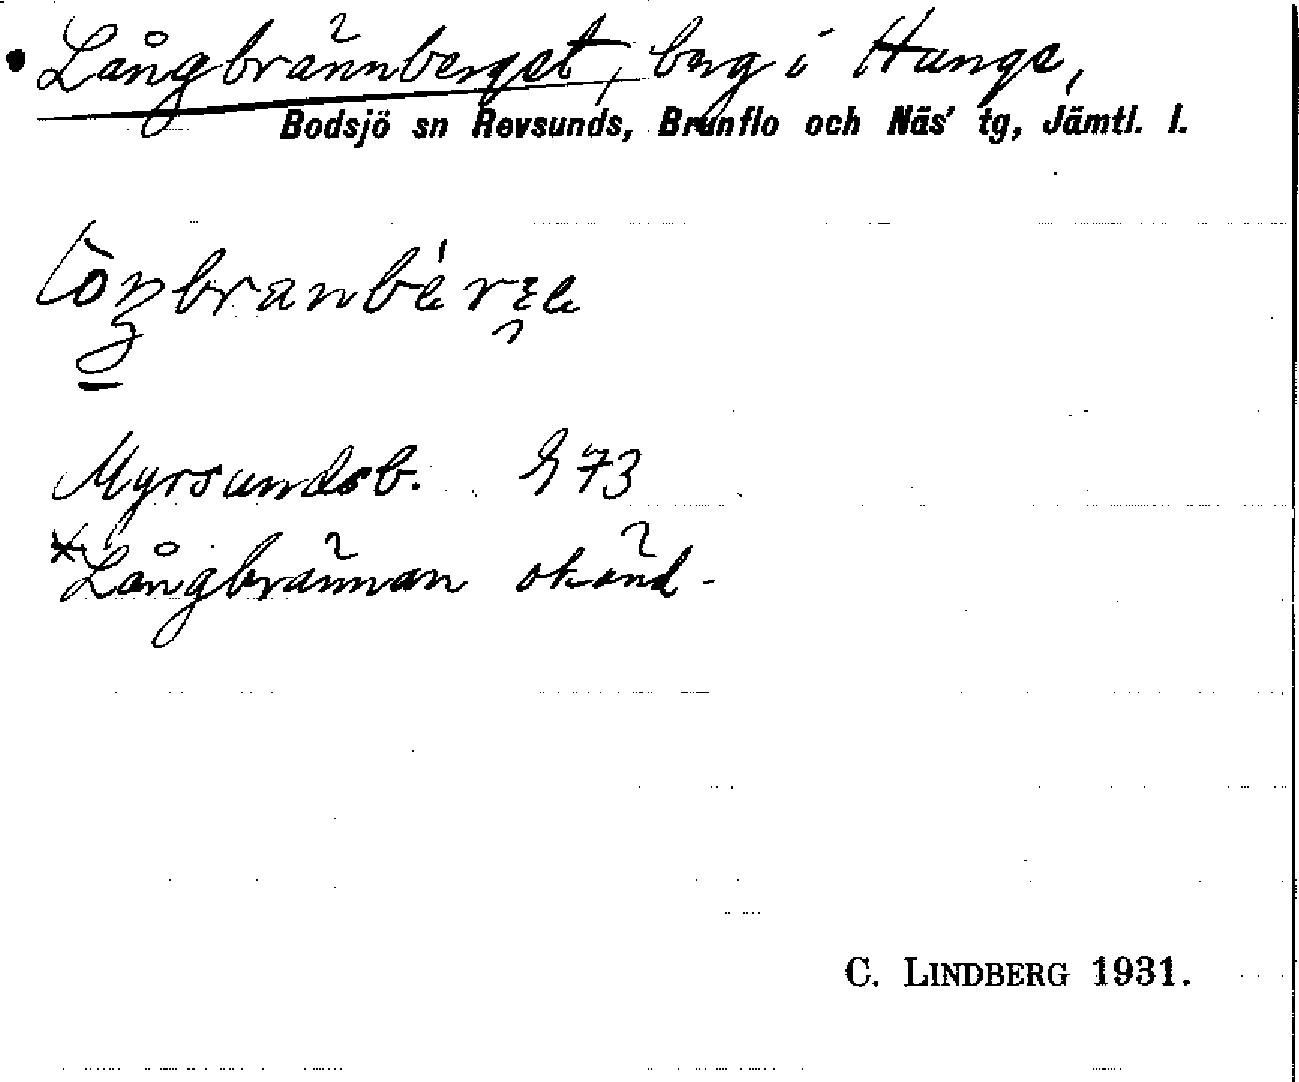 Långbrännberget, berg i Hunge,
Bodsjö sn Revsunds, Brunflo och Näs' tg, Jämtl. l.
Myrsundsb. G 73
*Långbrännan okänd.
C. LINDBERG 1931.